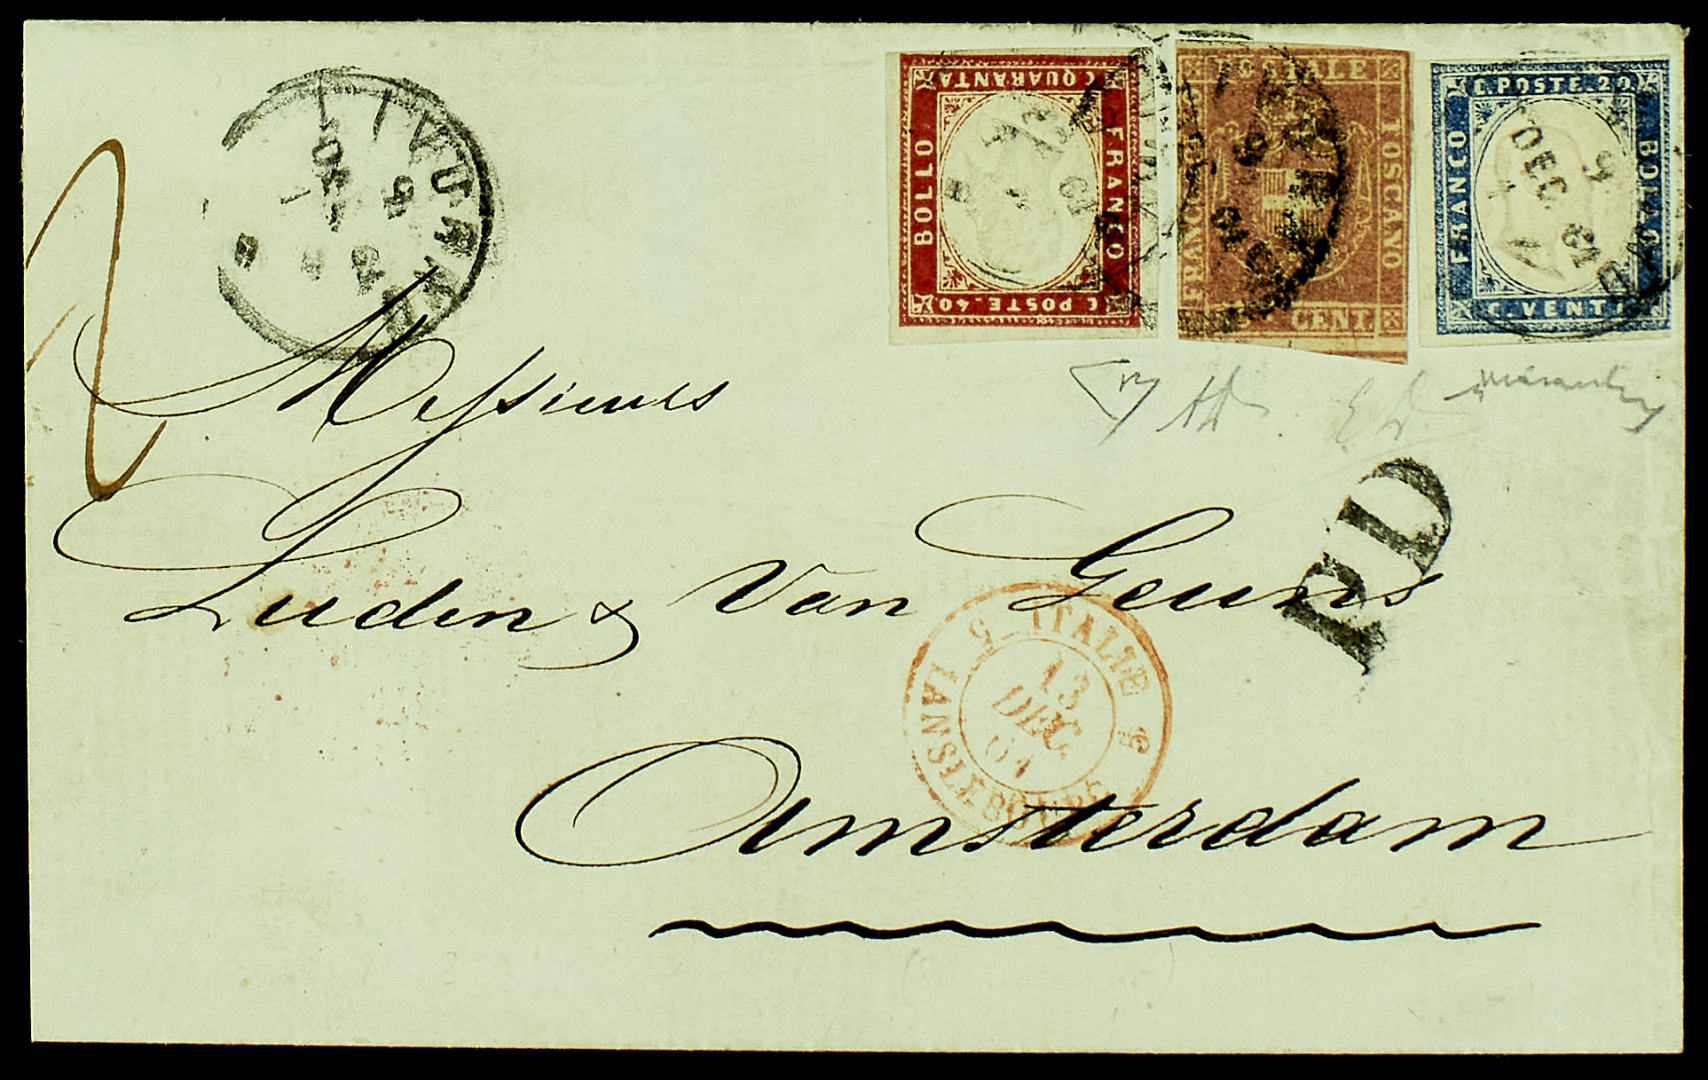 LIVORNO
9
DEC
61
C. QUARANTA
BOLLO
FRANCO
C. POSTE. 40
TOSCANO
CENT.
C. POSTE. 20
FRANCO
BOLLO
C. VENTI
9
DEC
61
Messieurs
PD
Luden & Van Geuns
5 ITALIE 5
13
DEC
61
LANSLEBOURG
Amsterdam